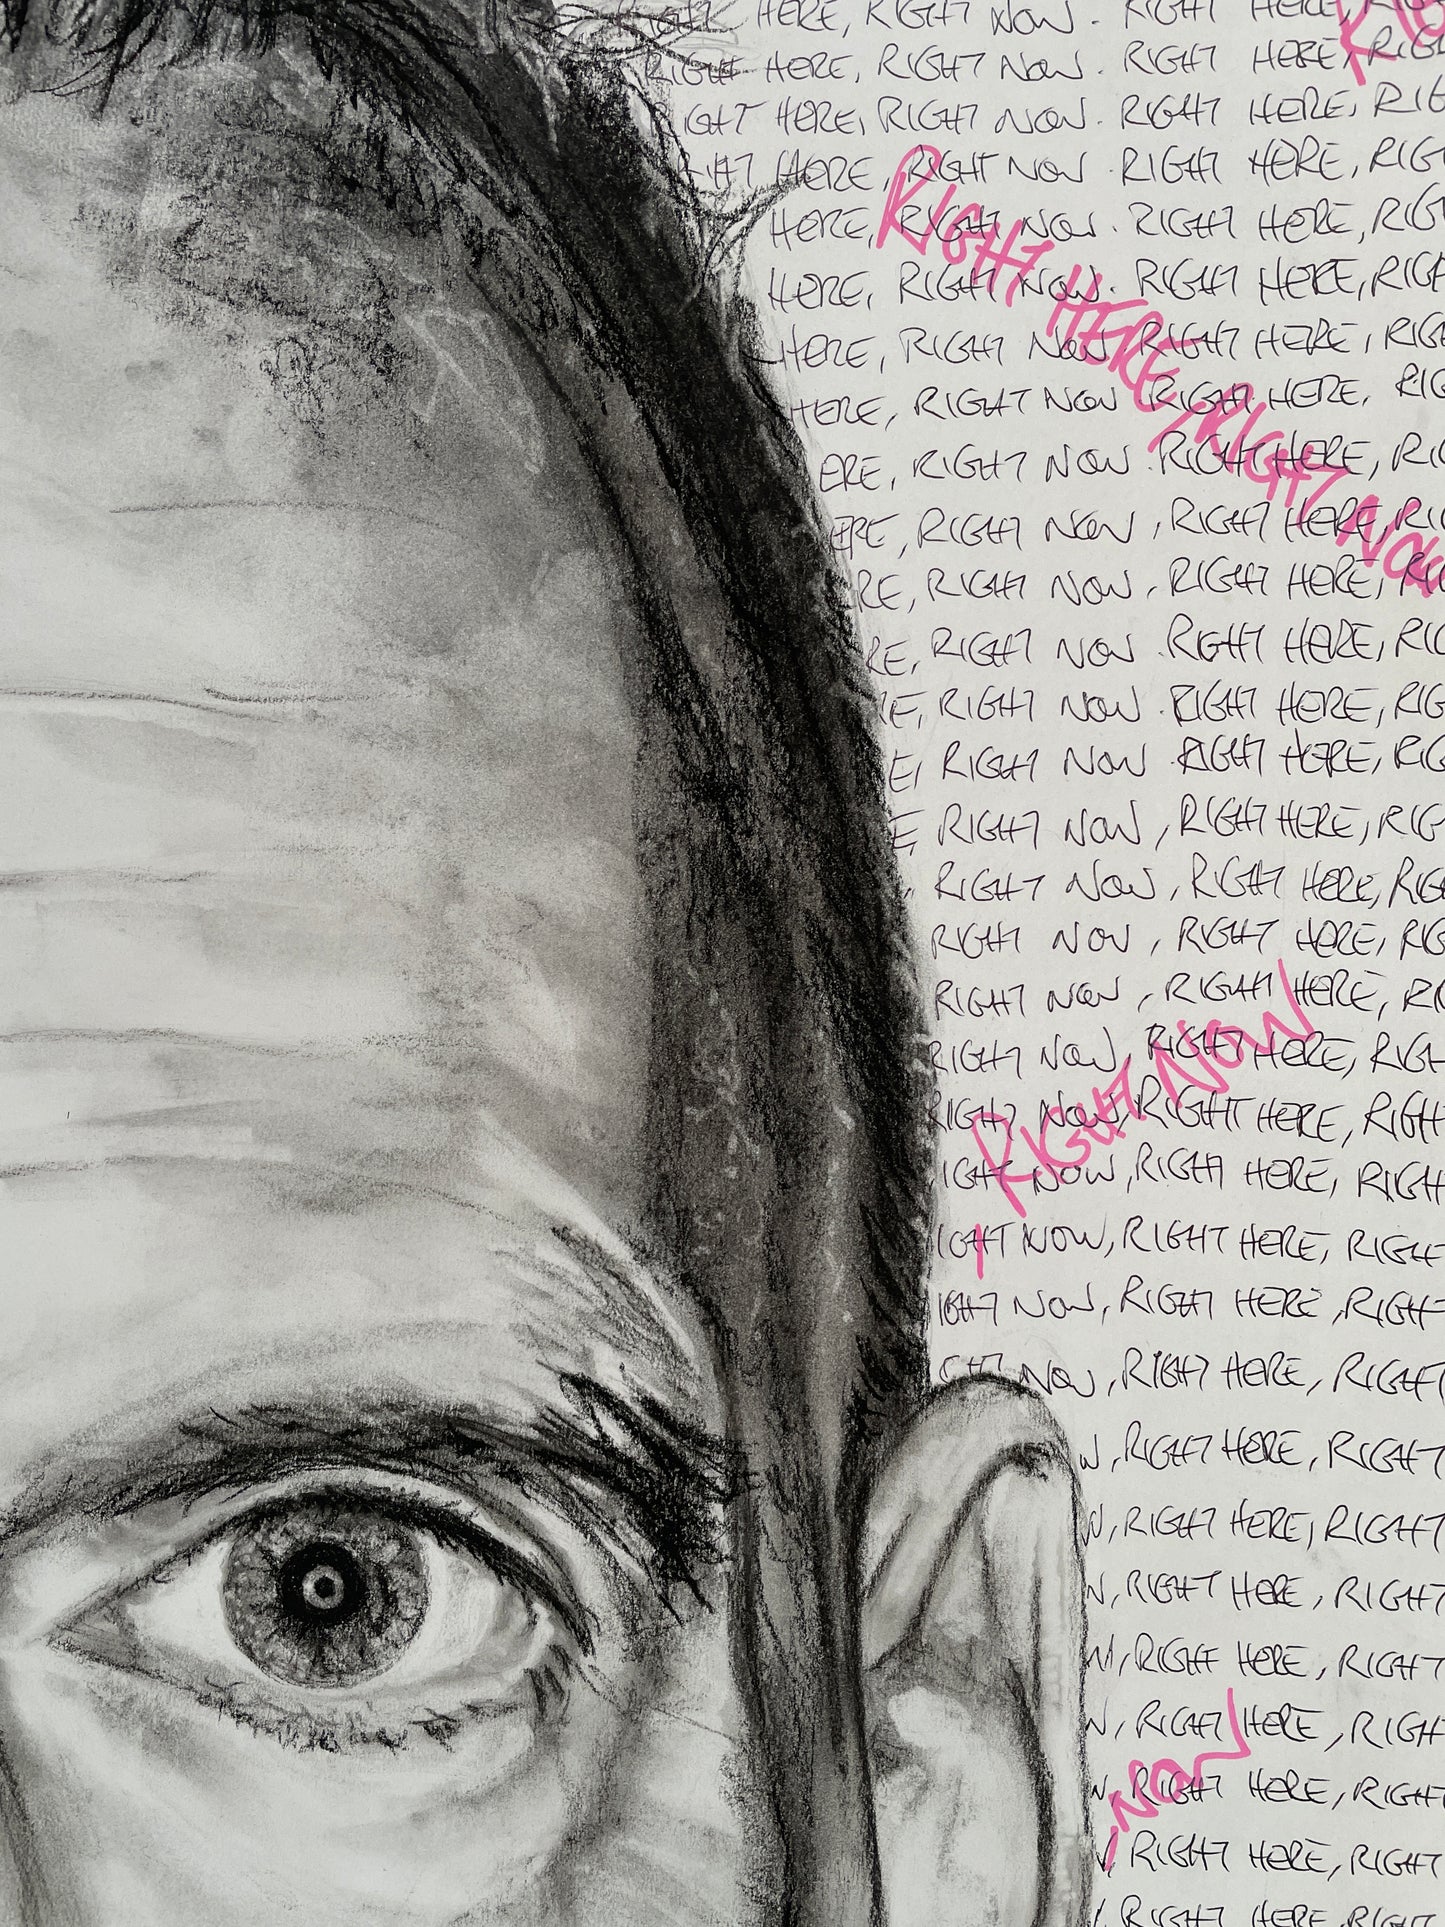 RIGHT HERE, RIGHT NOW. RIGHT HERE, RIG
RIGHT HERE, RIGHT NOW. RIGHT HERE, RIG
RIGHT HERE, RIGHT NOW. RIGHT HERE, RIG
HT HERE, RIGHT NOW. RIGHT HERE, RIG
HERE, RIGHT NOW. RIGHT HERE, RIG
HERE, RIGHT NOW. RIGHT HERE, RIG
HERE, RIGHT NOW. RIGHT HERE, RIG
HERE, RIGHT NOW. RIGHT HERE, RIG
ERE, RIGHT NOW. RIGHT HERE, RI
ERE, RIGHT NOW, RIGHT HERE, RI
RE, RIGHT NOW, RIGHT HERE, RI
RE, RIGHT NOW. RIGHT HERE, RIG
E, RIGHT NOW. RIGHT HERE, RIG
E, RIGHT NOW. RIGHT HERE, RIG
E, RIGHT NOW, RIGHT HERE, RIG
, RIGHT NOW, RIGHT HERE, RIG
RIGHT NOW, RIGHT HERE, RIG
RIGHT NOW, RIGHT HERE, RI
RIGHT NOW, RIGHT HERE, RIGH
RIGHT NOW, RIGHT HERE, RIGH
IGHT NOW, RIGHT HERE, RIGH
IGHT NOW, RIGHT HERE, RIGH
IGHT NOW, RIGHT HERE, RIGHT
GHT NOW, RIGHT HERE, RIGHT
W, RIGHT HERE, RIGHT
W, RIGHT HERE, RIGHT
W, RIGHT HERE, RIGHT
W, RIGHT HERE, RIGHT
W, RIGHT HERE, RIGHT
W, RIGHT HERE, RIGHT
W, RIGHT HERE, RIGHT
RIGHT HERE, RIGHT
RIGHT HERE, RIGHT NOW
RIGHT NOW
, NOW